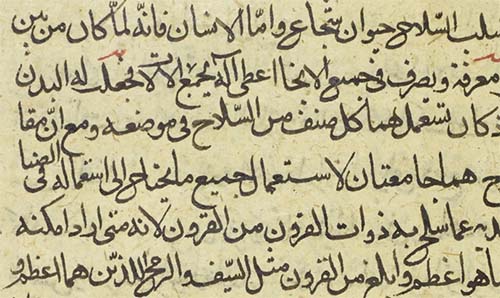 سلب السلاح حيوان شجاع واما الانسان فانه لما كان من بين
معرفة وتصرف في جميع الانحا اعطى آلة تجمع الآلات فجعلت له اليدن
كان تستعمل هما كل صنف من السلاح في موضعه ومع ان مقا
هما حا معتان لاستعمال جميع ما يحتاج الى استعماله في
عما سلح به ذوات القرون من القرون لانه متى اراد امكنه
ما هو اعظم وابلغ من القرون مثل السيف والرمح اللذين هما اعظم و